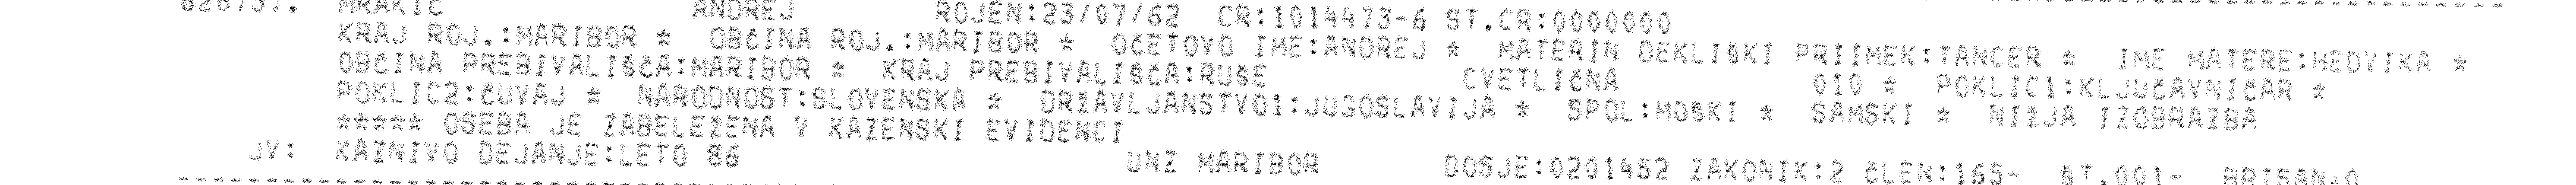 MRAKIČ ANDREJ ROJEN:23/07/62 CR:1014473-6 ST.CR:0000000
KRAJ ROJ.:MARIBOR * OBČINA ROJ.:MARIBOR * OČETOVO IME:ANDREJ * MATERIN DEKLIŠKI PRIIMEK:TANCER * IME MATERE:HEDVIKA *
OBČINA PREBIVALIŠČA:MARIBOR * KRAJ PREBIVALIŠČA:RUŠE CVETLIČNA 010 * POKLIC1:KLJUČAVNIČAR *
POKLIC2:ČUVAJ * NARODNOST:SLOVENSKA * DRŽAVLJANSTVO1:JUGOSLAVIJA * SPOL:MOŠKI * SAMSKI * NIŽJA IZOBRAZBA
***** OSEBA JE ZABELEŽENA V KAZENSKI EVIDENCI
JV: KAZNIVO DEJANJE:LETO 86 UNZ MARIBOR DOSJE:0201452 ZAKONIK:2 ČLEN:165- ŠT.001- BRISAN=0